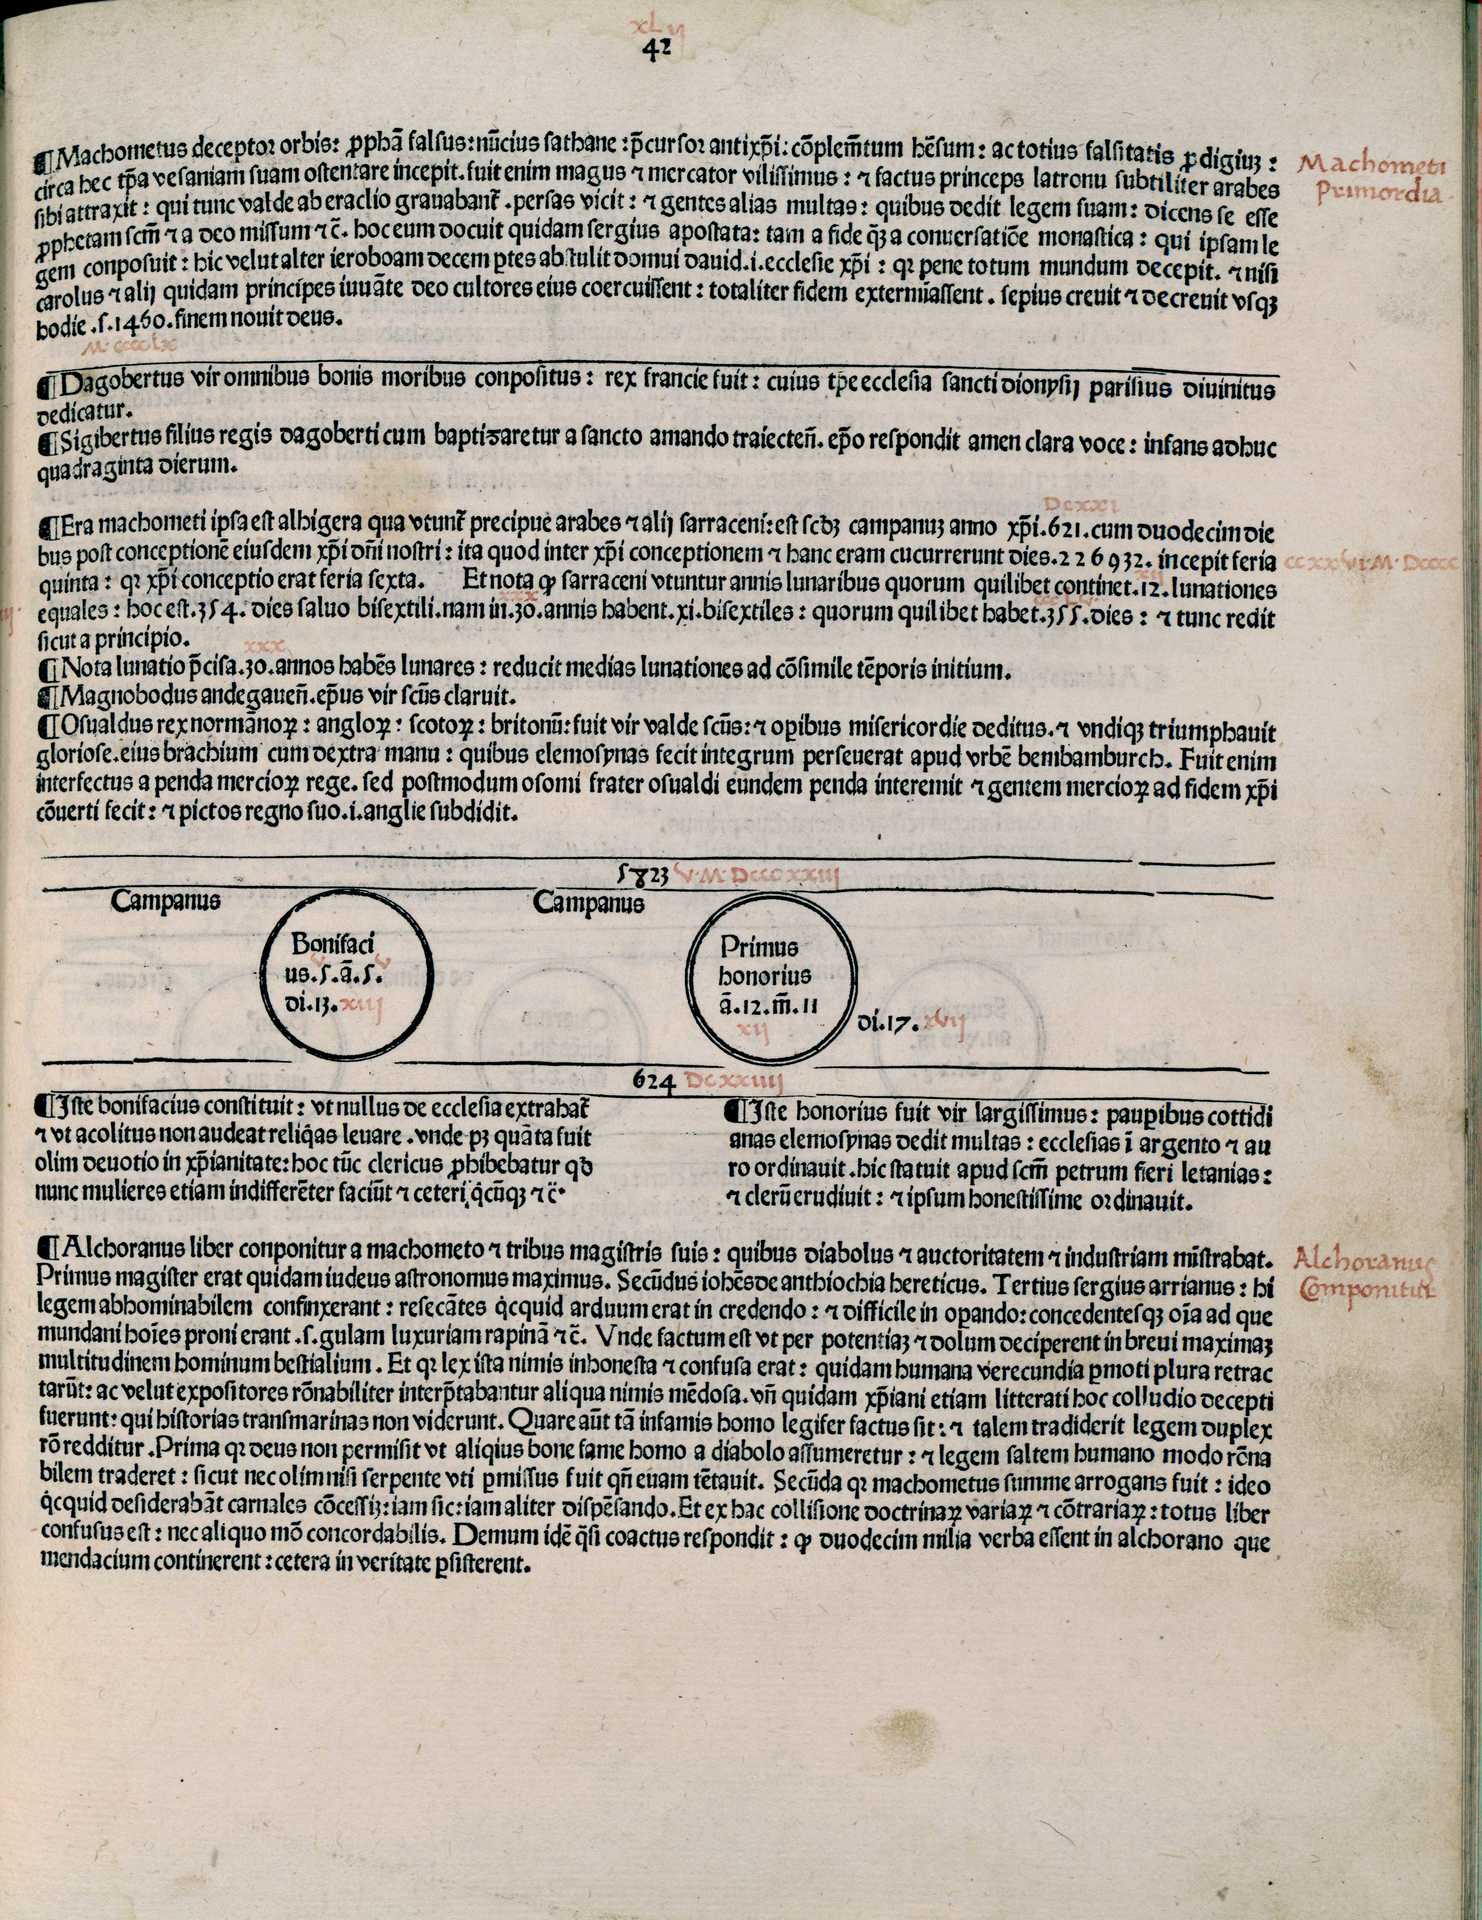 xLij
42
¶Machometus deceptor orbis: ꝓphā falsus: nūcius sathane: p̄cursor antixp̄i: cōplem̄tum hēsum: ac totius falsitatis ꝓdigiuꝫ:
circa hec tp̄a vesaniam suam ostentare incepit. fuit enim magus ⁊ mercator vilissimus: ⁊ factus princeps latronu subtiliter arabes
sibi attraxit: qui tunc valde ab eraclio grauabant᷑. persas vicit: ⁊ gentes alias multas: quibus dedit legem suam: dicens se esse
ꝓphetam scm̄ ⁊ a deo missum ⁊ c̄. hoc eum docuit quidam sergius apostata: tam a fide q̄ꝫ a conuersatiōe monastica: qui ipsam le
gem conposuit: hic velut alter ieroboam decem ꝑtes abstulit domui dauid .i. ecclesie xp̄i: qꝛ pene totum mundum decepit. ⁊ nisi
carolus ⁊ alij quidam principes iuuāte deo cultores eius coercuissent: totaliter fidem extermīassent. sepius creuit ⁊ decreuit vsqꝫ
hodie .s. 1460. finem nouit deus.
M.cccclx
¶Dagobertus vir omnibus bonis moribus conpositus: rex francie fuit: cuius tp̄e ecclesia sancti dionysij parisius diuinitus
dedicatur.
¶Sigibertus filius regis dagoberti cum baptizaretur a sancto amando traiecten̄. ep̄o respondit amen clara voce: infans adhuc
quadraginta dierum.
Dcxxi
¶Era machometi ipsa est alhigera qua vtunt᷑ precipue arabes ⁊ alij sarraceni: est scdꝫ campanuꝫ anno xp̄i .621. cum duodecim die
bus post conceptionē eiusdem xp̄i dn̄i nostri: ita quod inter xp̄i conceptionem ⁊ hanc eram cucurrerunt dies. 226932. incepit feria
quinta: qꝛ xp̄i conceptio erat feria sexta. Et nota ꝙ sarraceni vtuntur annis lunaribus quorum quilibet continet .12. lunationes
equales: hoc est .354. dies saluo bisextili. nam in .30. annis habent .xi. bisextiles: quorum quilibet habet .355. dies: ⁊ tunc redit
sicut a principio.
xxx
¶Nota lunatio p̄cisa .30. annos habēs lunares: reducit medias lunationes ad cōsimile tēporis initium.
¶Magnobodus andegauen̄. ep̄us vir scūs claruit.
¶Osualdus rex normānoꝝ: angloꝝ: scotoꝝ: britonū: fuit vir valde scūs: ⁊ oꝑibus misericordie deditus. ⁊ vndiqꝫ triumphauit
gloriose. eius brachium cum dextra manu: quibus elemosynas fecit integrum perseuerat apud vrbē bembamburch. Fuit enim
interfectus a penda mercioꝝ rege. sed postmodum osomi frater osualdi eundem penda interemit ⁊ gentem mercioꝝ ad fidem xp̄i
cōuerti fecit: ⁊ pictos regno suo .i. anglie subdidit.
5823 V.M.Dcccxxiij
Campanus
Bonifaci
us .5. ā. 5.
di. 13. xiij
Campanus
Primus
honorius
ā. 12. m̄. 11
xij
di. 17. xvij
624 Dcxxiiij
¶Iste bonifacius constituit: vt nullus de ecclesia extrahat᷑
⁊ vt acolitus non audeat reliq̄as leuare. vnde pꝫ quāta fuit
olim deuotio in xp̄ianitate: hoc tūc clericus ꝓhibebatur qd̄
nunc mulieres etiam indifferēter faciūt ⁊ ceteri q̇cūqꝫ ⁊ c̄.
¶Iste honorius fuit vir largissimus: pauꝑibus cottidi
anas elemosynas dedit multas: ecclesias ī argento ⁊ au
ro ordinauit. hic statuit apud scm̄ petrum fieri letanias:
⁊ clerū erudiuit: ⁊ ipsum honestissime ordinauit.
¶Alchoranus liber conponitur a machometo ⁊ tribus magistris suis: quibus diabolus ⁊ auctoritatem ⁊ industriam mīstrabat.
Primus magister erat quidam iudeus astronomus maximus. Secūdus iohēs de anthiochia hereticus. Tertius sergius arrianus: hi
legem abhominabilem confinxerant: resecātes q̇cquid arduum erat in credendo: ⁊ difficile in oꝑando: concedentesqꝫ oīa ad que
mundani hoīes proni erant .s. gulam luxuriam rapinā ⁊ c̄. Vnde factum est vt per potentiaꝫ ⁊ dolum deciperent in breui maximaꝫ
multitudinem hominum bestialium. Et qꝛ lex ista nimis inhonesta ⁊ confusa erat: quidam humana verecundia ꝑmoti plura retrac
tarūt: ac velut expositores rōnabiliter interp̄tabantur aliqua nimis mēdosa. vn̄ quidam xp̄iani etiam litterati hoc colludio decepti
fuerunt: qui historias transmarinas non viderunt. Quare aūt tā infamis homo legifer factus sit: ⁊ talem tradiderit legem duplex
rō redditur. Prima qꝛ deus non permisit vt aliqius bone fame homo a diabolo assumeretur: ⁊ legem saltem humano modo rōna
bilem traderet: sicut nec olim nisi serpente vti ꝑmissus fuit qn̄ euam tētauit. Secūda qꝛ machometus summe arrogans fuit: ideo
q̇cquid desiderabāt carnales cōcessꝫ: iam sic: iam aliter dispēsando. Et ex hac collisione doctrinaꝝ variaꝝ ⁊ cōtrariaꝝ: totus liber
confusus est: nec aliquo mō concordabilis. Demum idē q̄si coactus respondit: ꝙ duodecim milia verba essent in alchorano que
mendacium continerent: cetera in veritate ꝑsisterent.
Machometi
Primordia
ccxxvi.M.Dcccc
Alchoranus
Componitur